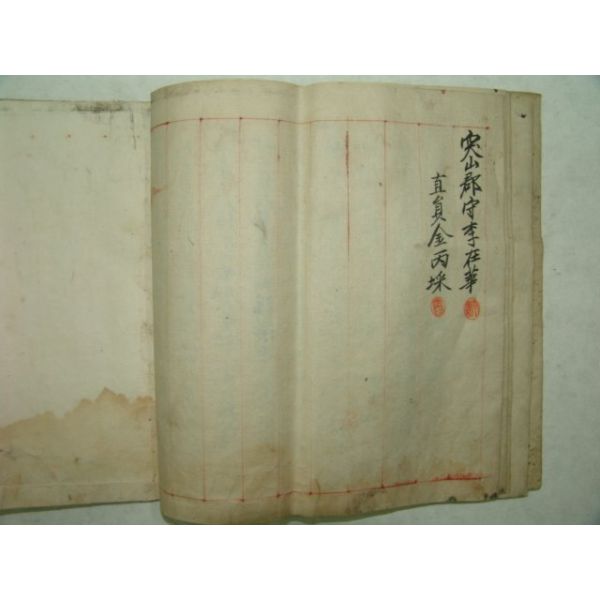 突山郡守李在華
直員金丙埰